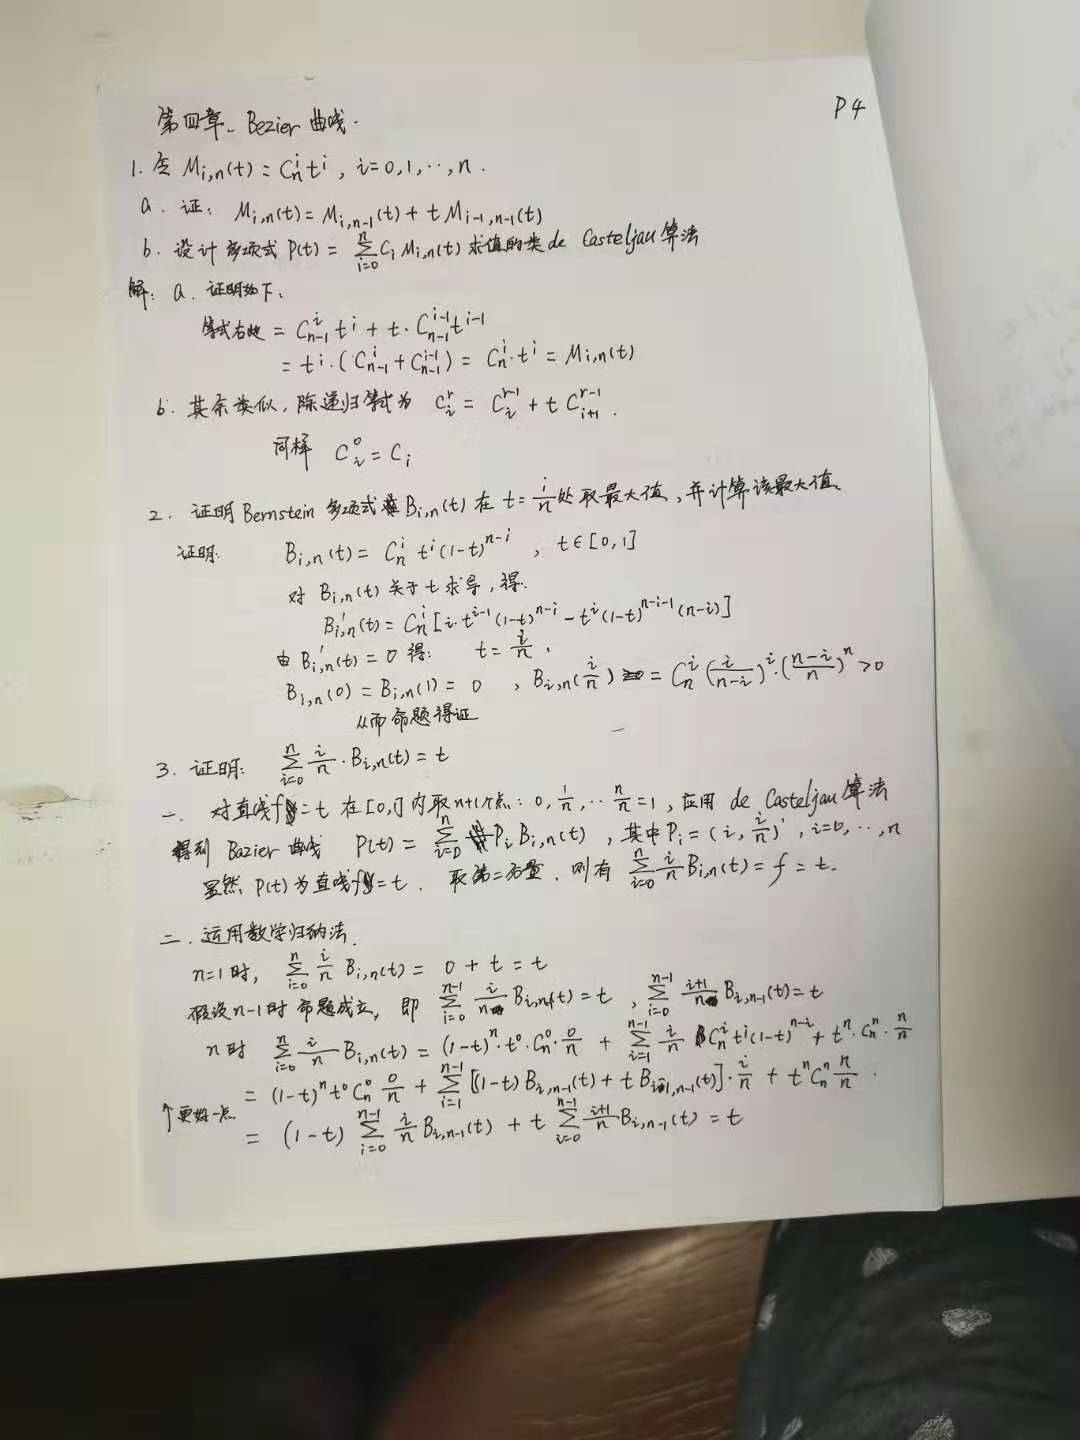 P4
第四章. Bezier 曲线.
1. 令 M_{i,n}(t) = C_n^i t^i , i=0,1,…,n.
a. 证: M_{i,n}(t) = M_{i,n-1}(t) + t M_{i-1,n-1}(t)
b. 设计多项式 P(t) = \sum_{i=0}^{n} C_i M_{i,n}(t) 求值的类 de Casteljau 算法
解: a. 证明如下:
等式右边 = C_{n-1}^i t^i + t · C_{n-1}^{i-1} t^{i-1}
= t^i · (C_{n-1}^i + C_{n-1}^{i-1}) = C_n^i · t^i = M_{i,n}(t)
b. 其余类似, 除递归等式为 C_i^r = C_i^{r-1} + t C_{i+1}^{r-1} .
同样 C_i^0 = C_i
2. 证明 Bernstein 多项式 B_{i,n}(t) 在 t = \frac{i}{n} 处取最大值, 并计算该最大值.
证明: B_{i,n}(t) = C_n^i t^i (1-t)^{n-i} , t∈[0,1]
对 B_{i,n}(t) 关于 t 求导, 得:
B_{i,n}'(t) = C_n^i [i·t^{i-1}(1-t)^{n-i} - t^i(1-t)^{n-i-1}(n-i)]
由 B_{i,n}'(t) = 0 得: t = \frac{i}{n} .
B_{i,n}(0) = B_{i,n}(1) = 0 , B_{i,n}(\frac{i}{n}) = C_n^i (\frac{i}{n-i})^i · (\frac{n-i}{n})^n > 0
从而命题得证
3. 证明: \sum_{i=0}^{n} \frac{i}{n} · B_{i,n}(t) = t
一. 对直线 f = t 在 [0,1] 内取 n+1 个点: 0, \frac{1}{n}, … \frac{n}{n} = 1, 应用 de Casteljau 算法
得到 Bazier 曲线 P(t) = \sum_{i=0}^{n} P_i B_{i,n}(t) , 其中 P_i = (i, \frac{i}{n})' , i=0,…,n
显然 P(t) 为直线 f = t . 取第二分量, 则有 \sum_{i=0}^{n} \frac{i}{n} B_{i,n}(t) = f = t.
二. 运用数学归纳法.
n=1 时, \sum_{i=0}^{n} \frac{i}{n} B_{i,n}(t) = 0 + t = t
假设 n-1 时 命题成立, 即 \sum_{i=0}^{n-1} \frac{i}{n} B_{i,n-1}(t) = t , \sum_{i=0}^{n-1} \frac{i+1}{n} B_{i,n-1}(t) = t
n 时 \sum_{i=0}^{n} \frac{i}{n} B_{i,n}(t) = (1-t)^n · t^0 · C_n^0 · \frac{0}{n} + \sum_{i=1}^{n-1} \frac{i}{n} C_n^i t^i (1-t)^{n-i} + t^n · C_n^n · \frac{n}{n}
= (1-t)^n t^0 C_n^0 \frac{0}{n} + \sum_{i=1}^{n-1} [(1-t) B_{i,n-1}(t) + t B_{i-1,n-1}(t)] · \frac{i}{n} + t^n C_n^n \frac{n}{n} .
↑更好一点
= (1-t) \sum_{i=0}^{n-1} \frac{i}{n} B_{i,n-1}(t) + t \sum_{i=0}^{n-1} \frac{i+1}{n} B_{i,n-1}(t) = t